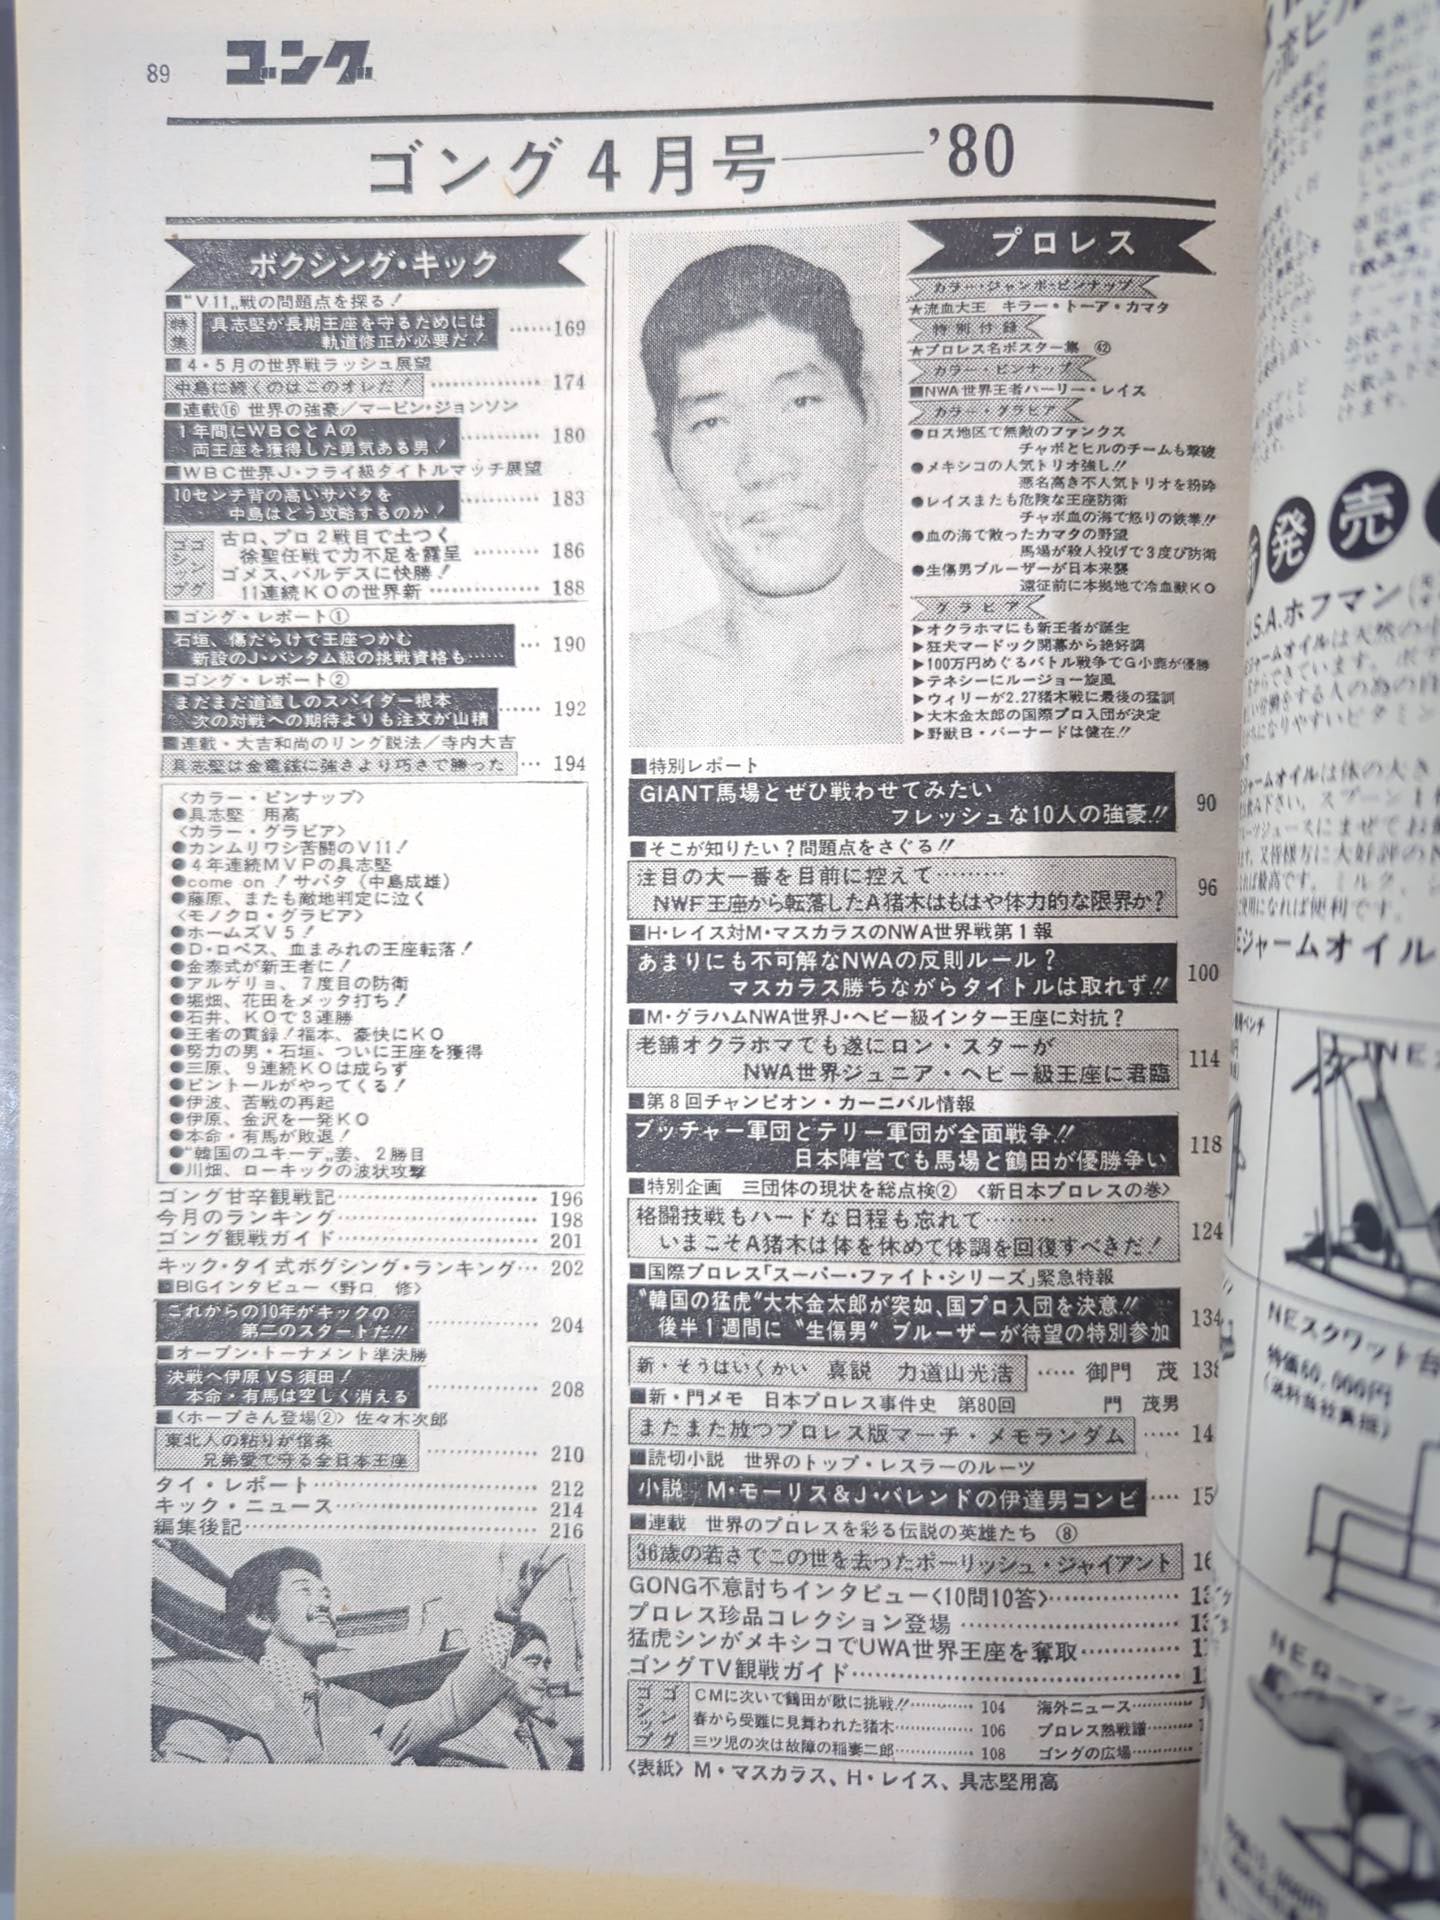 89 ゴング
ゴング4月号――'80
ボクシング・キック
■“V11„戦の問題点を探る！
特集 具志堅が長期王座を守るためには
軌道修正が必要だ！ ……169
■4・5月の世界戦ラッシュ展望
中島に続くのはこのオレだ！ …………… 174
■連載⑯ 世界の強豪／マービン・ジョンソン
1年間にWBCとAの
両王座を獲得した勇気ある男！ ……… 180
■WBC世界J・フライ級タイトルマッチ展望
10センチ背の高いサパタを
中島はどう攻略するのか！ ……… 183
ゴングゴシップ
古口、プロ2戦目で土つく
徐聖任戦で力不足を露呈 ……… 186
ゴメス、バルデスに快勝！
11連続KOの世界新 …………… 188
■ゴング・レポート①
石垣、傷だらけで王座つかむ
新設のJ・バンタム級の挑戦資格も…… … 190
■ゴング・レポート②
まだまだ道遠しのスパイダー根本
次の対戦への期待よりも注文が山積 …… 192
■連載・大吉和尚のリング説法／寺内大吉
具志堅は金竜鉉に強さより巧さで勝った … 194
〈カラー・ピンナップ〉
●具志堅 用高
〈カラー・グラビア〉
●カンムリワシ苦闘のV11！
●4年連続MVPの具志堅
●come on！サパタ（中島成雄）
●藤原、またも敵地判定に泣く
〈モノクロ・グラビア〉
●ホームズV5！
●D・ロペス、血まみれの王座転落！
●金泰式が新王者に！
●アルゲリョ、7度目の防衛
●堀畑、花田をメッタ打ち！
●石井、KOで3連勝
●王者の貫録！福本、豪快にKO
●努力の男・石垣、ついに王座を獲得
●三原、9連続KOは成らず
●ピントールがやってくる！
●伊波、苦戦の再起
●伊原、金沢を一発KO
●本命・有馬が敗退！
●“韓国のユキーデ„姜、2勝目
●川畑、ローキックの波状攻撃
ゴング甘辛観戦記……………………… 196
今月のランキング……………………… 198
ゴング観戦ガイド……………………… 201
キック・タイ式ボクシング・ランキング… 202
■BIGインタビュー〈野口 修〉
これからの10年がキックの
第二のスタートだ!! …………… 204
■オープン・トーナメント準決勝
決戦へ伊原VS須田！
本命・有馬は空しく消える …………… 208
■〈ホープさん登場②〉佐々木次郎
東北人の粘りが信条
兄弟愛で守る全日本王座 …………… 210
タイ・レポート………………………… 212
キック・ニュース……………………… 214
編集後記………………………………… 216
プロレス
カラー・ジャンボ・ピンナップ
★流血大王 キラー・トーア・カマタ
特別付録
★プロレス名ポスター集 ㊷
カラー・ピンナップ
■NWA世界王者ハーリー・レイス
カラー・グラビア
●ロス地区で無敵のファンクス
チャボとヒルのチームも撃破
●メキシコの人気トリオ強し!!
悪名高き不人気トリオを粉砕
●レイスまたも危険な王座防衛
チャボ血の海で怒りの鉄拳!!
●血の海で散ったカマタの野望
馬場が殺人投げで3度び防衛
●生傷男ブルーザーが日本来襲
遠征前に本拠地で冷血獣KO
グラビア
▶オクラホマにも新王者が誕生
▶狂犬マードック開幕から絶好調
▶100万円めぐるバトル戦争でG小鹿が優勝
▶テネシーにルージョー旋風
▶ウィリーが2.27猪木戦に最後の猛訓
▶大木金太郎の国際プロ入団が決定
▶野獣B・バーナードは健在!!
■特別レポート
GIANT馬場とぜひ戦わせてみたい
フレッシュな10人の強豪!! 90
■そこが知りたい？問題点をさぐる!!
注目の大一番を目前に控えて………
NWF王座から転落したA猪木はもはや体力的な限界か？ 96
■H・レイス対M・マスカラスのNWA世界戦第1報
あまりにも不可解なNWAの反則ルール？
マスカラス勝ちながらタイトルは取れず!! 100
■M・グラハムNWA世界J・ヘビー級インター王座に対抗？
老舗オクラホマでも遂にロン・スターが
NWA世界ジュニア・ヘビー級王座に君臨 114
■第8回チャンピオン・カーニバル情報
ブッチャー軍団とテリー軍団が全面戦争!!
日本陣営でも馬場と鶴田が優勝争い 118
■特別企画 三団体の現状を総点検② 〈新日本プロレスの巻〉
格闘技戦もハードな日程も忘れて………
いまこそA猪木は体を休めて体調を回復すべきだ！ 124
■国際プロレス「スーパー・ファイト・シリーズ」緊急特報
“韓国の猛虎”大木金太郎が突如、国プロ入団を決意!!
後半1週間に“生傷男”ブルーザーが待望の特別参加 134
新・そうはいくかい 真説 力道山光浩 …… 御門 茂 138
■新・門メモ 日本プロレス事件史 第80回 門 茂男
またまた放つプロレス版マーチ・メモランダム …… 14
■読切小説 世界のトップ・レスラーのルーツ
小説 M・モーリス&J・バレンドの伊達男コンビ …… 15
■連載 世界のプロレスを彩る伝説の英雄たち ⑧
36歳の若さでこの世を去ったポーリッシュ・ジャイアント 16
GONG不意討ちインタビュー〈10問10答〉………………
プロレス珍品コレクション登場 ………………………
猛虎シンがメキシコでUWA世界王座を奪取…………
ゴングTV観戦ガイド……………………………………
ゴングゴシップ
CMに次いで鶴田が歌に挑戦!!………… 104
春から受難に見舞われた猪木…………… 106
三ツ児の次は故障の稲妻二郎…………… 108
海外ニュース…………
プロレス熱戦譜………
ゴングの広場…………
〈表紙〉M・マスカラス、H・レイス、具志堅用高
発売
U.S.A.ホフマン
ジャームオイルは天然の小
ジャームオイルは体の大き
ジャームオイル
NEスクワット台
特価60,000円
（送料当社負担）
NEローマンチ